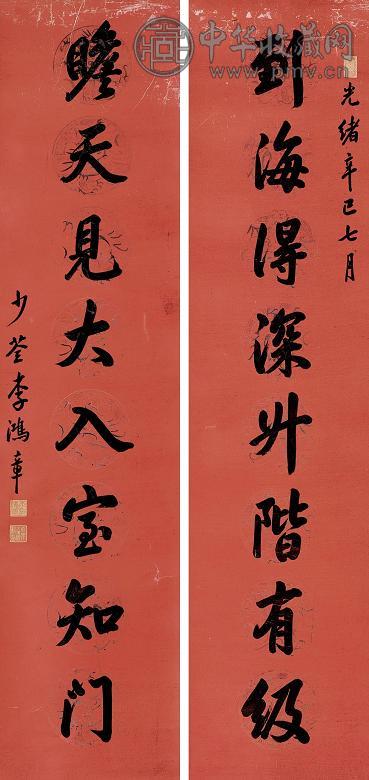 中华收藏网
www.pmv.cn
光緒辛巳七月
海得深升階有級
瞻天見大入室知門
少荃李鴻章